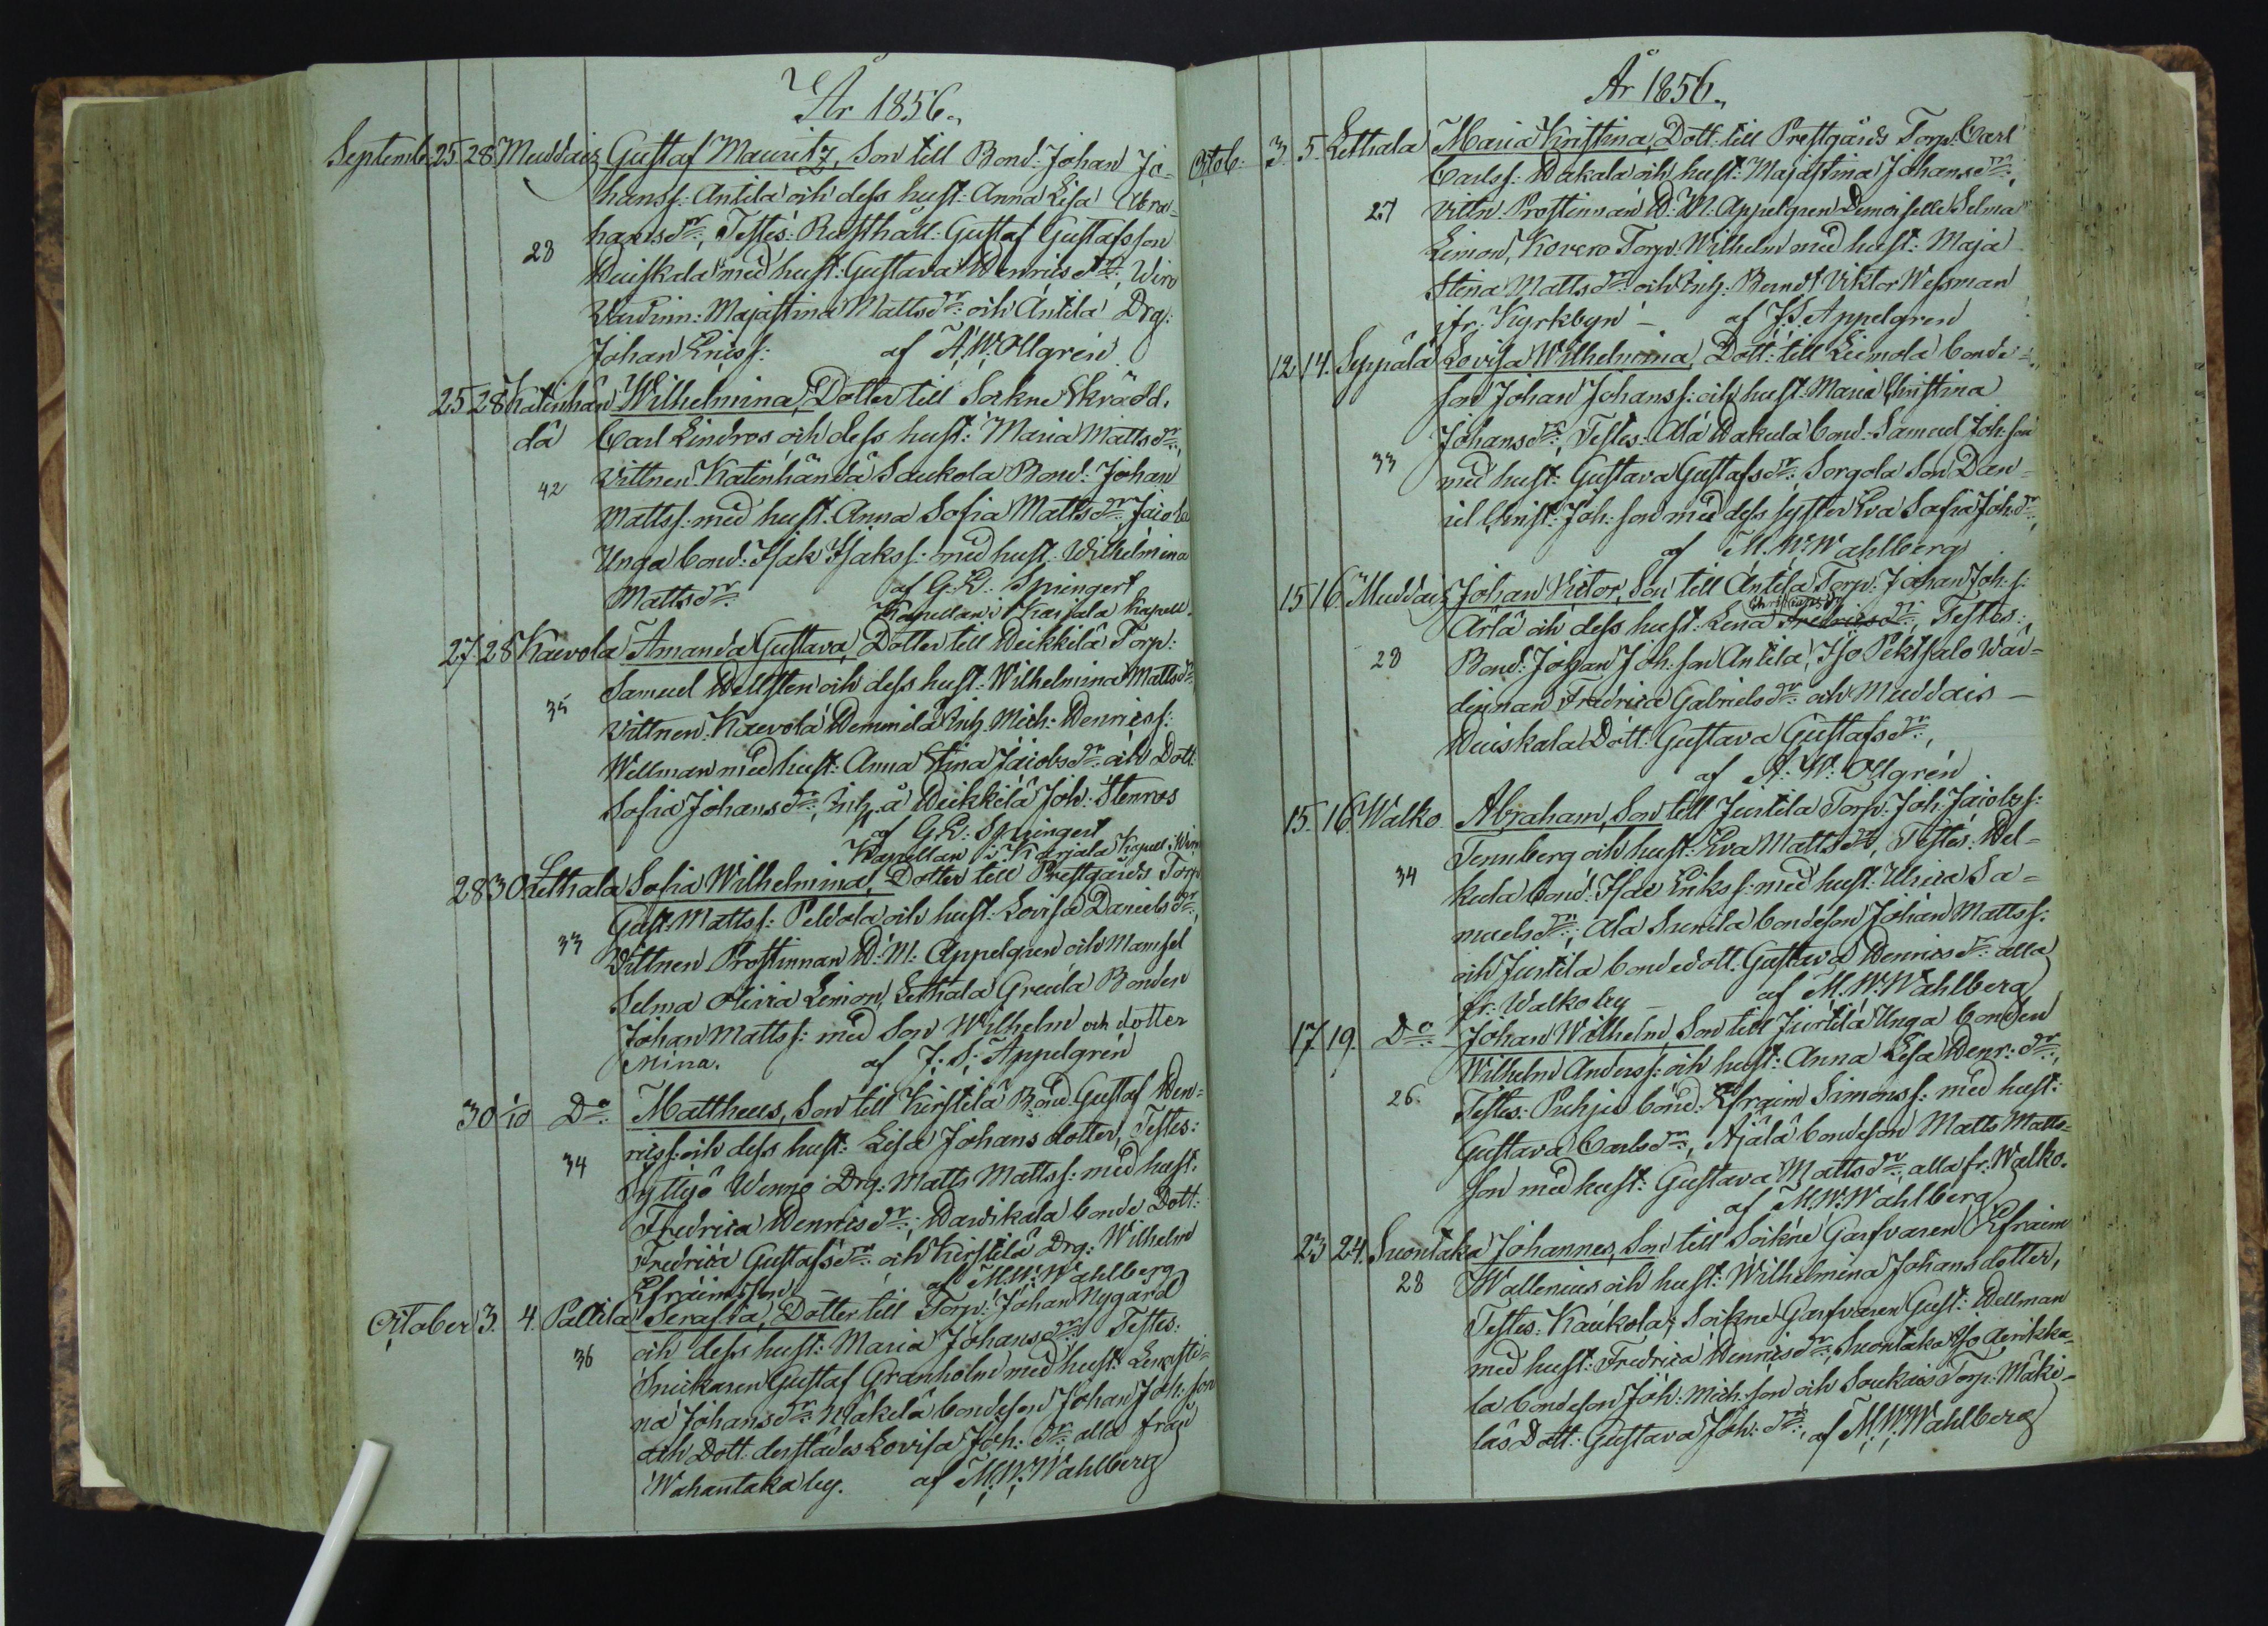 År 1856.
Septemb. 25 28 Muddais Gustaf Mauritz, Son till Bond: Johan Jo=
hanss: Antila och dess hust: Anna Lisa Abra=
hamsdr:, Testes: Rusthåll: Gustaf Gustafsson
28
Huiskala med hust: Gustava Henricsdr:, Wiro
Värdinn: Majastina Mattsdr: och Antila Drg:
Johan Ericss: af A. W. Ollgrén
25 28 Katinhän Wilhelmina, Dotter till Sockne Skrädd.
dä Carl Lindros och dess hust: Maria Mattsdr:,
42 Vittnen Katinhändä Saukola Bond: Johan
Mattss: med hust: Anna Sofia Mattsdr:
Unga bond: Isak Isakss: med hust: Wilhelmina
Mattsdr: af G. E. Springert
Kapellan i Karjala Kapell
27. 28 Kaevola Amanda Gustava, Dotter till Heikkilä Torp:
Samuel Hellsten och dess hust: Wilhelmina Mattsdr:
35 Vittnen: Kaevola Hemmilä Inh. Mich: Henricss:
Wellman med hust: Anna Stina Jacobsdr: och Dott:
Sofia Johansdr:, Inh. å Heikkilä Joh: Stenros
af G. E. Springert
Kapellan i Karjala Kapell
28 30 Lethala Sofia Wilhelmina, Dotter till Prestgårds Torp
Gust: Mattss: Peldola och hust: Lovisa Danielsdr:,
33 Vittnen Prostinnan H: M: Appelgren och Mamsel
Selma Olivia Limon, Lethala Greula Bonden
Johan Mattss: med Son Wilhelm och dotter
Mina. af J. S. Appelgrén
30 1/10 Do: Mattheus, Son till Kirstilä Bond Gustaf Hen=
34 ricss: och dess hust: Lisa Johans dotter, Testes:
Wenno Drg: Matts Mattss: med hust:
Fredrica Henricsdr:, Hawikala bonde Dott:
Fredrica Gustafsdr: och Kirstilä Drg: Wilhelm
Efraimsson af M. W. Wahlberg
October 3. 4. Paltila Serafia, Dotter till Torp: Johan Nygård
36 och dess hust: Maria Johansdr: Testes:
Snickaren Gustaf Granholm med hust: Lenasti=
na Johansdr: Mäkilä bondeson Johan Joh: son
och Dott. derstädes Lovisa Joh: dr: alla från
Wahantaka by. af M. W. Wahlberg
År 1856.
Octob. 3. 5. Lethala Maria Kristina, Dott: till Prestgårds Torp: Carl
Carlss: Hakala och hust: Majastina Johansdr:,
27 Vittn: Prostinnan H: M: Appelgren Demoiselle Selma
Limon, Kovero Torp Wilhelm med hust: Maja
Stina Mattsdr: och Inh. Berndt Viktor Wessman
ifr. Kyrkbyn – af J. S. Appelgren
12 14. Seppälä Lovisa Wilhelmina, Dott: till Leimola bonde=
son Johan Johanss: och hust: Maria Christina
Johansdr:, Testes: Ala Hakula bond: Samuel Joh:son
33 med hust: Gustava Gustafsdr: Sorgola Son Dan=
iel Christ: Joh: son med dess syster Eva Sofia Joh:dr:,
af M. W. Wahlberg
15 16. Muddais Johan Victor, Son till Antila Torp: Johan Joh: s:
Ärlä och dess hust: Lena Fredricsdr:, Testes:
28 Bond: Johan Joh: son Antila, Iso Pihtsalo Wär=
dinnan Fredrica Gabrielsdr: och Muddais –
Huiskala Dott: Gustava Gustafsdr:,
af A: W: Ollgrén
15. 16 Walko Abraham, Son till Juntila Torp: Joh: Jacobss:
Tennberg och hust: Eva Mattsdr:, Testes: Hel=
34 kula bond: Isac Erikss: med hust: Ulrica Sa=
muelsdr:, Ala Sunila bondeson Johan Mattss:
och Juntila bondedott. Gustava Henricsdr: alla
fr. Walko by – af M. W. Wahlberg
17 19. Do: Johan Wilhelm, Son till Juntila Unga bonden
Wilhelm Anderss: och hust: Anna Lisa Henr: dr:,
26. Testes: Puhjo bond: Efraim Simonss: med hust:
Gustava Carlsdr:, Äjälä bondeson Matts Matts=
son med hust: Gustava Mattsdr: alla fr. Walko.
af M. W. Wahlberg
23 24. Suontaka Johannes, Son till Sockne Garfvaren Efraim
28 Wallenius och hust: Wilhelmina Johansdotter,
Testes: Kaukola Sockne Garfvaren Gust: Hellman
med hust: Fredrica Henricsdr:, Suontaka Iso
la bondeson Joh: Mich: son och Soukais Torp: Mäki-
läs Dott: Gustava Joh: dr:, af M. W. Wahlberg